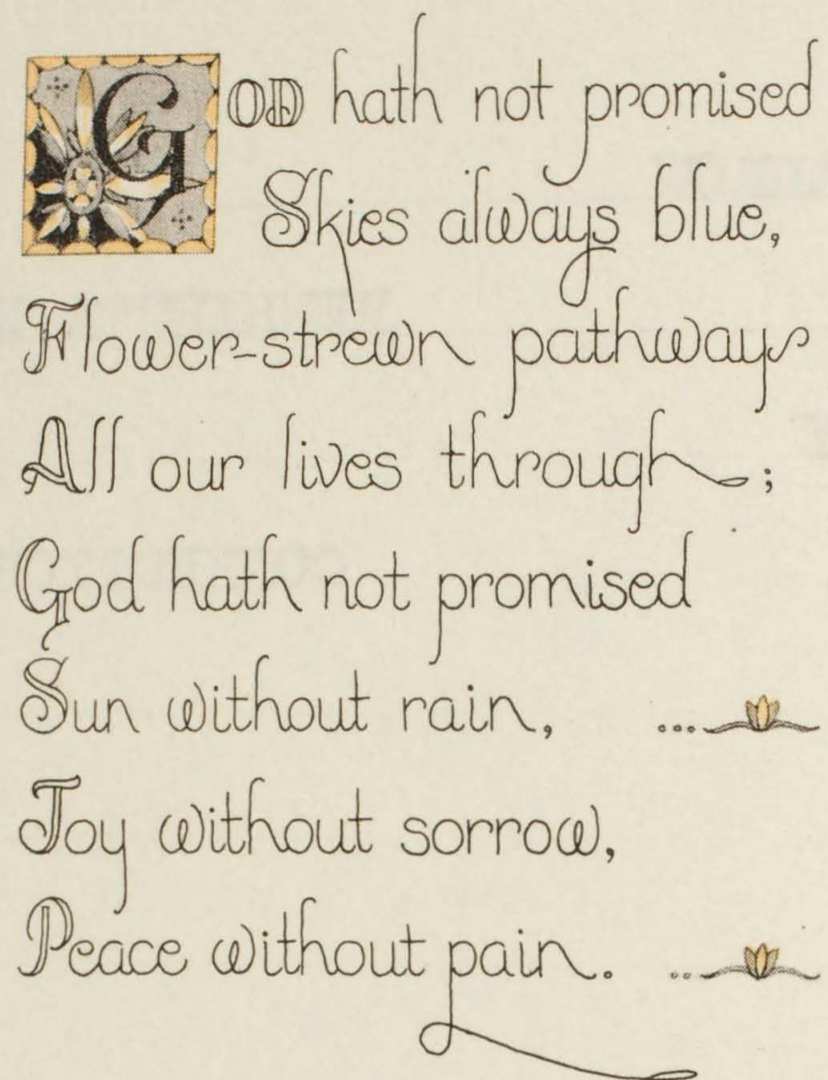 GOD hath not promised
Skies always blue,
Flower-strewn pathways
All our lives through;
God hath not promised
Sun without rain,
Joy without sorrow,
Peace without pain.